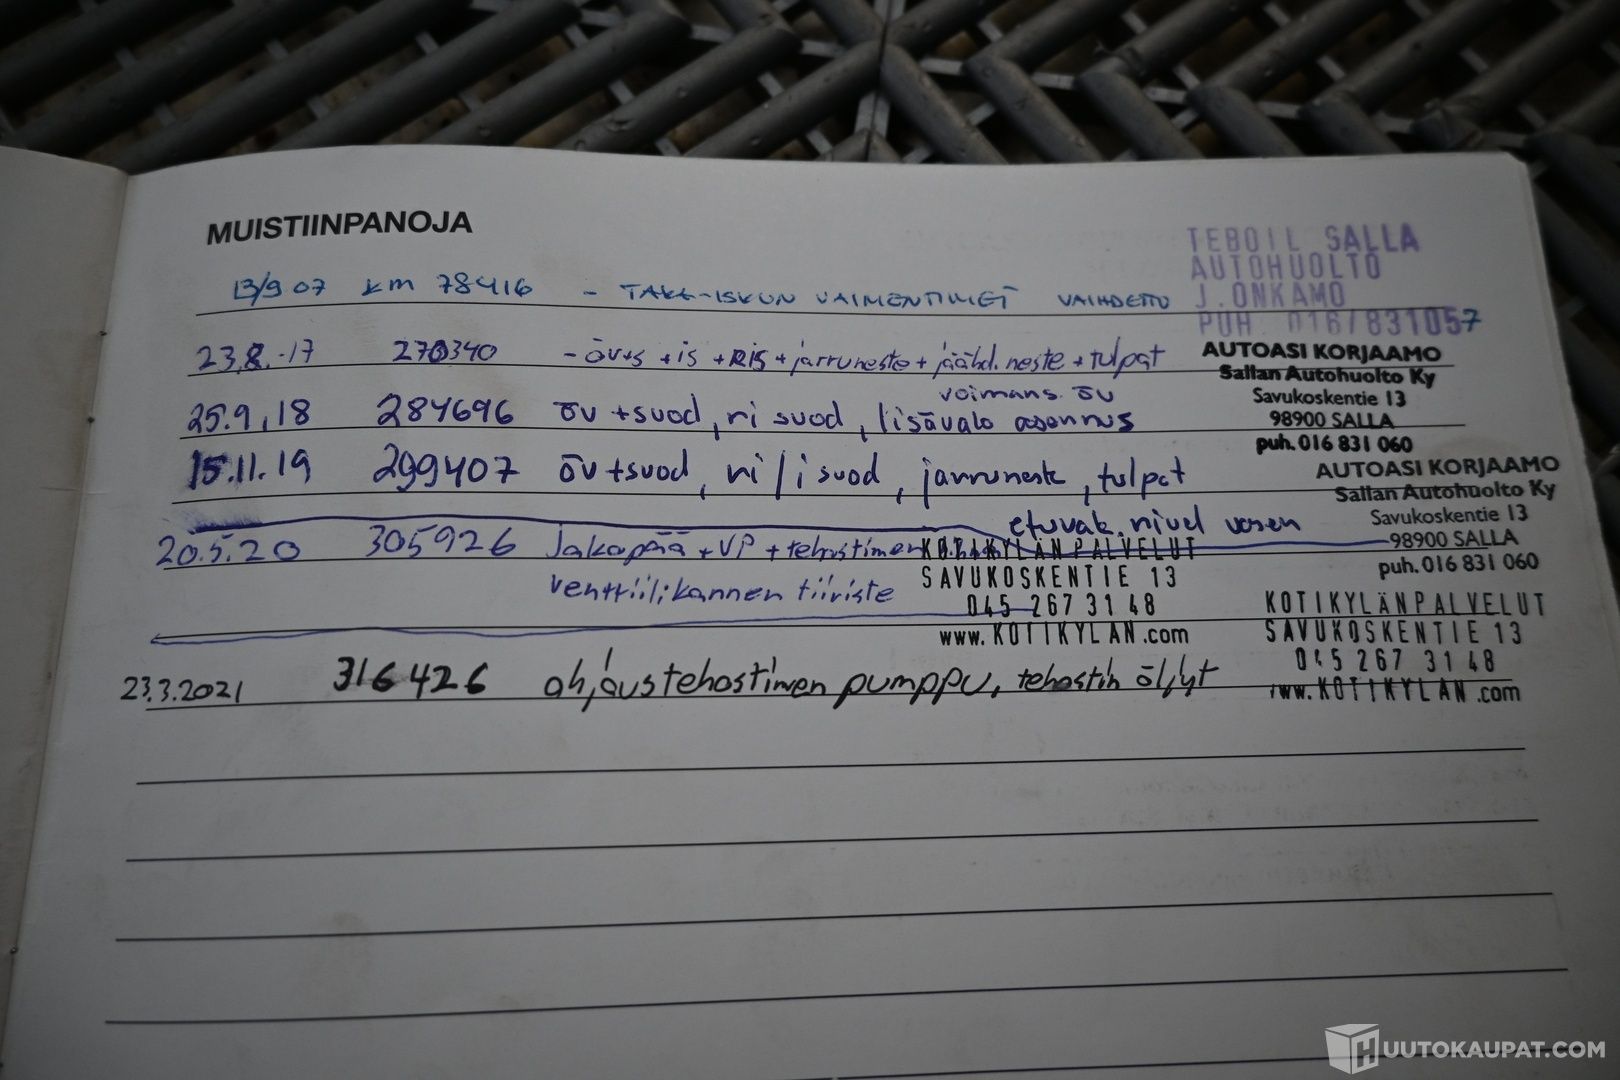 MUISTIINPANOJA
TEBOIL SALLA
AUTOHUOLTO
J. ONKAMO
PUH. 016/831057
13/9 07 km 78416 - TAKA-ISKUN VAIMENTIMET VAIHDETTU
23.8.-17 270340 - öv+s +is +RIS +jarruneste + jäähd.neste + tulpat
AUTOASI KORJAAMO
Sallan Autohuolto Ky
Savukoskentie 13
98900 SALLA
puh. 016 831 060
voimans. öv
25.9.18 284696 öv +suod, ri suod, lisävalo asennus
15.11.19 299407 öv +suod, ri/i suod, jarruneste, tulpat
etuvak. nivel vasen
AUTOASI KORJAAMO
Sallan Autohuolto Ky
Savukoskentie 13
98900 SALLA
puh. 016 831 060
20.5.20 305926 Jakopää + VP + tehostimen
venttiilikannen tiiviste
KOTIKYLÄNPALVELUT
SAVUKOSKENTIE 13
045 267 31 48
www.KOTIKYLAN.com
23.3.2021 316426 ohjaustehostimen pumppu, tehostin öljyt
KOTIKYLÄNPALVELUT
SAVUKOSKENTIE 13
045 267 31 48
www.KOTIKYLAN.com
HUUTOKAUPAT.COM